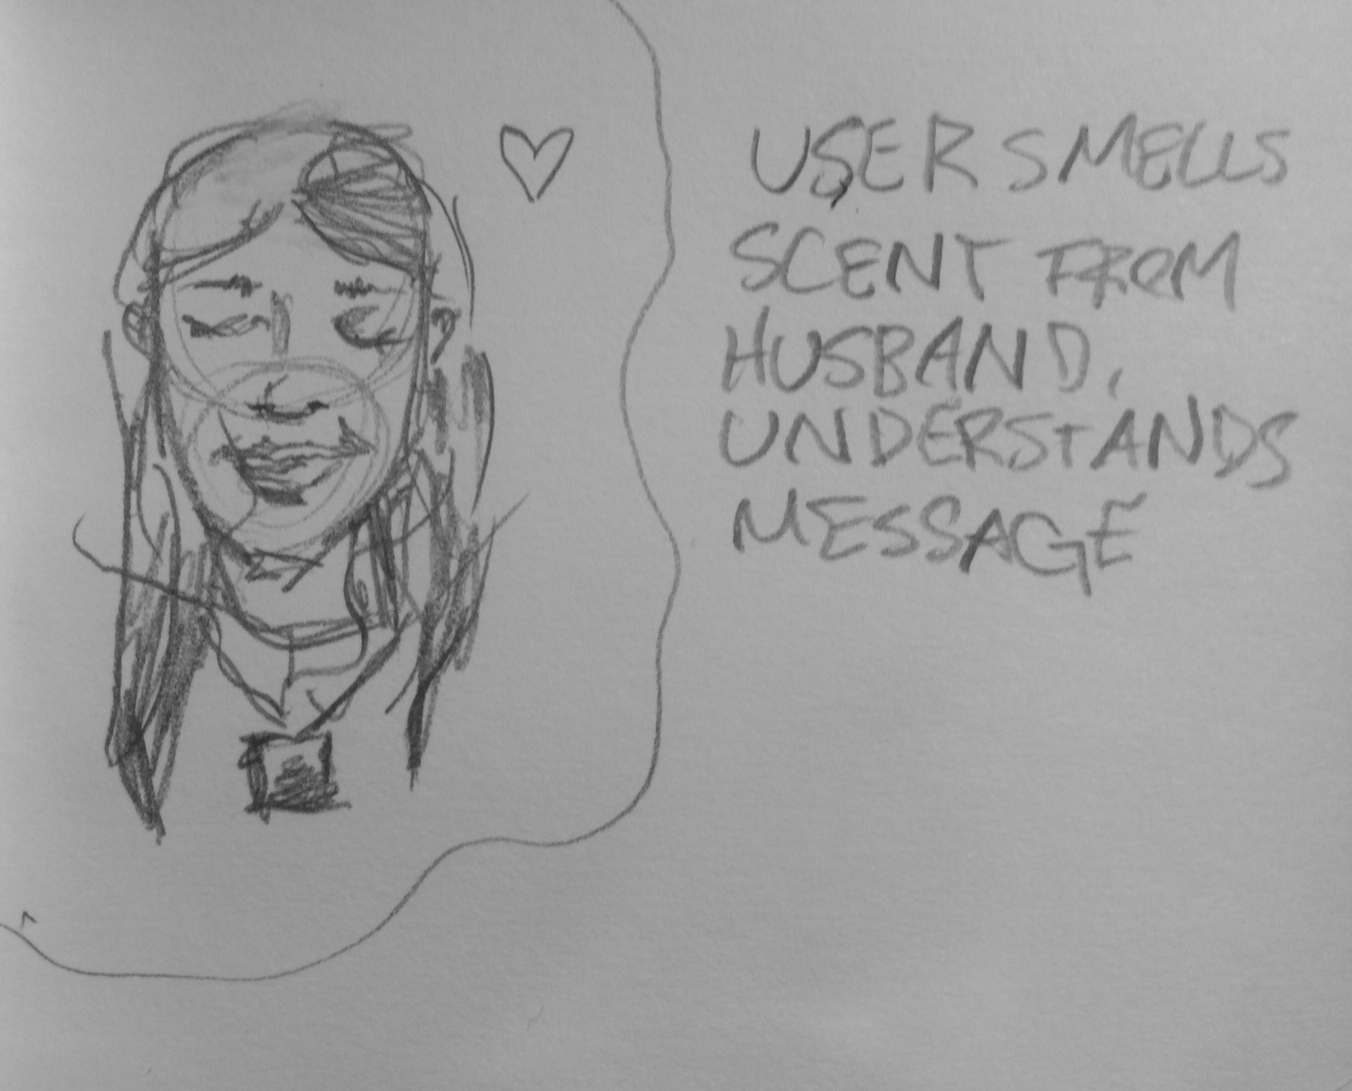 USER SMELLS
SCENT FROM
HUSBAND,
UNDERSTANDS
MESSAGE